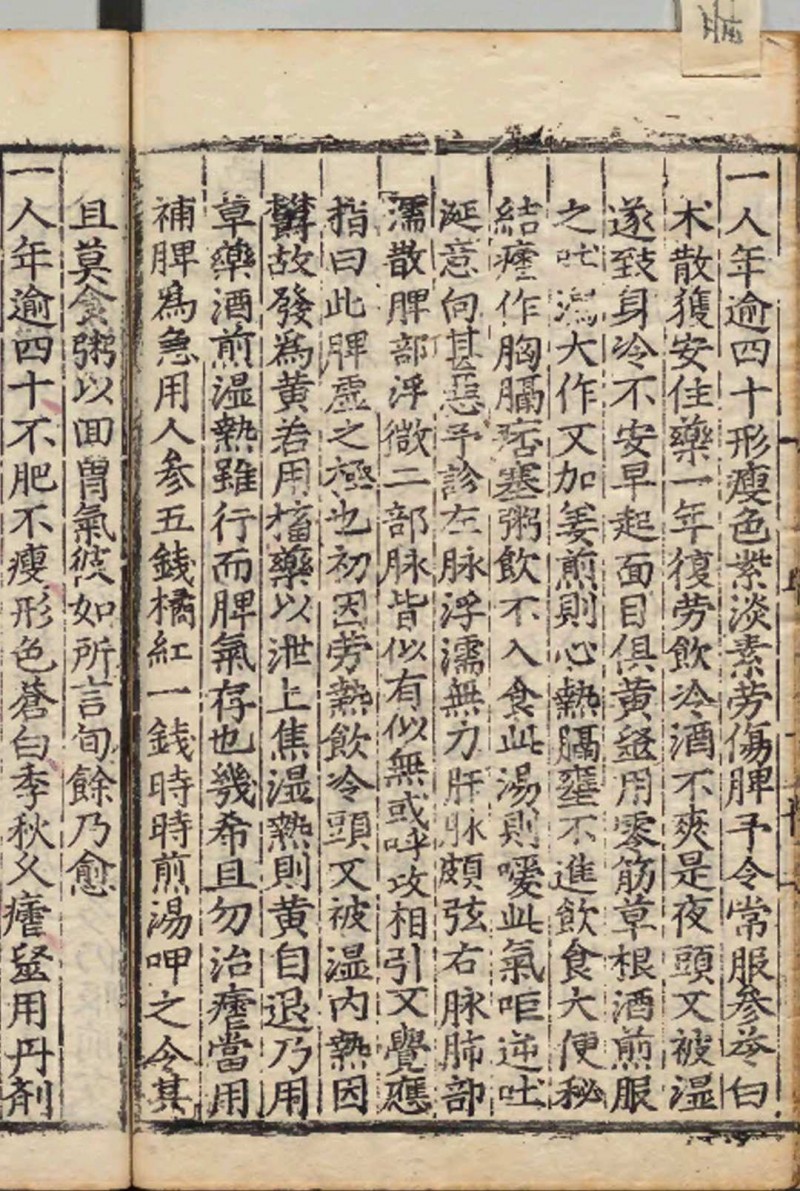 一人年逾四十形瘦色紫淡素劳傷脾予令常服参苓白
术散獲安住藥一年復劳飲冷酒不爽是夜頭又被湿
遂致身冷不安早起面目俱黄毉用零筋草根酒煎服
之吐瀉大作又加姜煎則心熱膈壅不進飲食大便秘
結瘧作胸膈痞塞粥飲不入食此湯則噯此氣呕逆吐
涎意向甚惡予診左脉浮濡無力肝脉頗弦右脉肺部
濡散脾部浮微二部脉皆似有似無或呼攻相引又覺應
指曰此脾虚之極也初因劳熱飲冷頭又被湿内熱因
欝故發為黄若用搐藥以泄上焦湿熱則黄自退乃用
草藥酒煎湿熱雖行而脾氣存也幾希且勿治瘧當用
補脾為急用人参五錢橘紅一錢時時煎湯呷之令其
且莫食粥以回胃氣彼如所言旬餘乃愈
一人年逾四十不肥不瘦形色蒼白季秋久瘧毉用丹剤